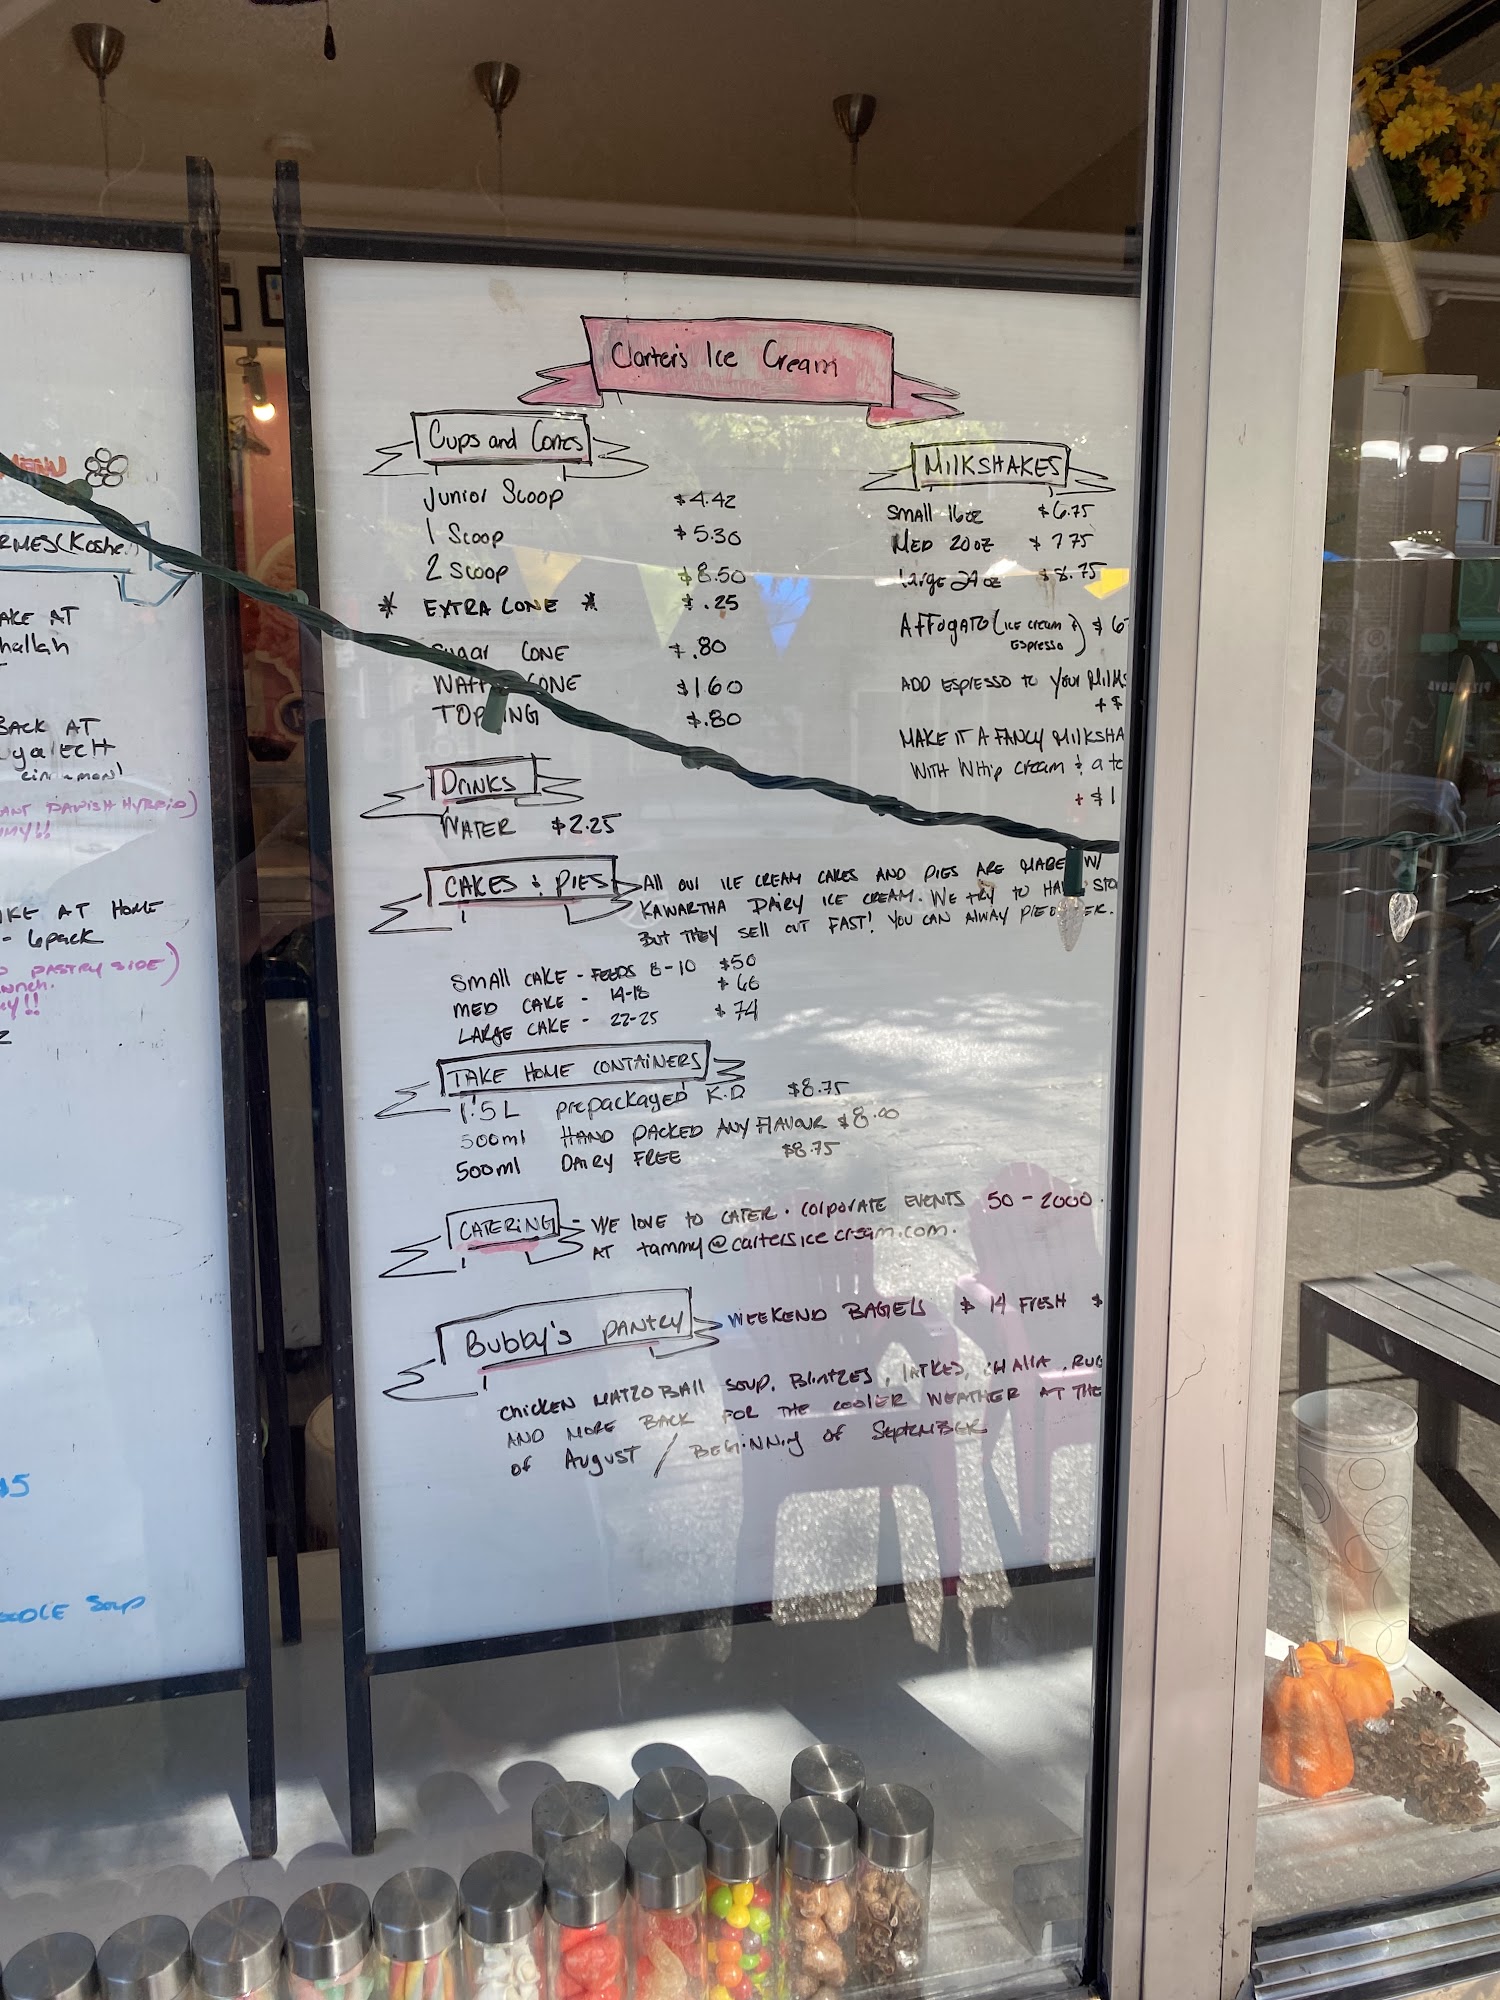 MENU
RMES(Koshe
AKE AT
hallah
BACK AT
ugalECH
cinnamon)
ANT DANISH HYBRID)
MMY!!
AKE AT HOME
- 6pack
PASTRY SIDE)
y!!
Z
15
OODLE Soup
Carter's Ice Cream
Cups and Cones
Junior Scoop $4.42
1 Scoop $5.30
2 Scoop $8.50
* EXTRA CONE * $.25
Sugar CONE $.80
WAFF CONE $1.60
TOPPING $.80
DRINKS
WATER $2.25
CAKES & PIES
All our ICE CREAM CAKES AND PIES ARE MADE W/
KAWARTHA DAIRY ICE CREAM. WE TRY TO HAVE STO
BUT THEY SELL OUT FAST! YOU CAN Alway PREORDER.
SMALL CAKE - FEEDS 8-10 $50
MED CAKE - 14-18 $66
LARGE CAKE - 22-25 $74
TAKE HOME CONTAINERS
1.5L prepackaged K.D $8.75
500ml HAND PACKED ANY FlAVOUR $8.00
500ml DAIRY FREE $8.75
CATERING
- WE love to CATER. Corporate EVENTS 50-2000.
AT tammy@cartersicecream.com.
Bubby's PANTRY
WEEKEND BAGELS $14 FRESH $
Chicken MATZO BAll SOUP, BlINTZES, lATKES, CHAllA, RUG
AND MORE BACK FOR THE COOLER WEATHER AT THE
of AUGUST / BEGINNING of SEPTEMBER
MilKSHAKES
SMALL 16oz $6.75
MED 20oz $7.75
large 24oz $8.75
AFFOGATO (ICE CREAM & Espresso) $6
ADD ESPRESSO to your MilKS
+ $
MAKE IT A FANCY MilKSHA
WITH WHip CREAM & a to
+ $1